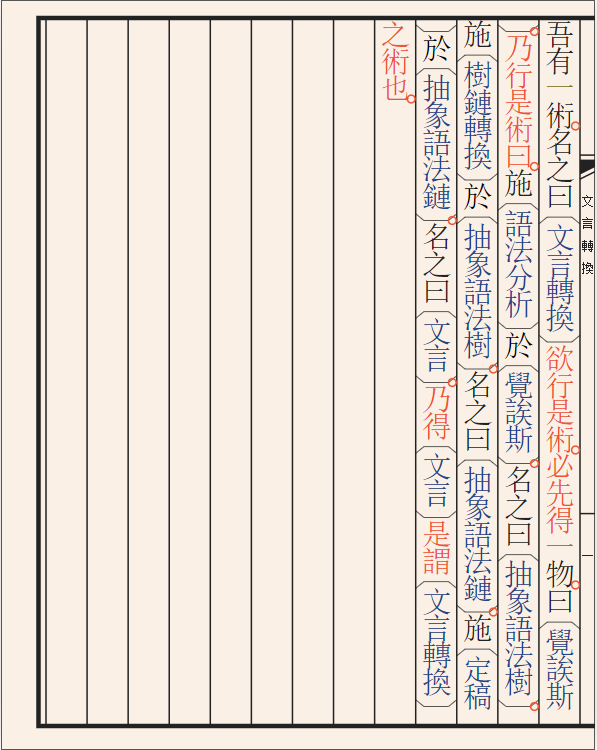 文言轉換
一
吾有一術。名之曰「文言轉換」欲行是術。必先得一物。曰「覺誒斯
」。乃行是術曰。施「語法分析」於「覺誒斯」。名之曰「抽象語法樹」。
施「樹鏈轉換」於「抽象語法樹」。名之曰「抽象語法鏈」。施「定稿
」於「抽象語法鏈」。名之曰「文言」。乃得「文言」是謂「文言轉換」
之術也。